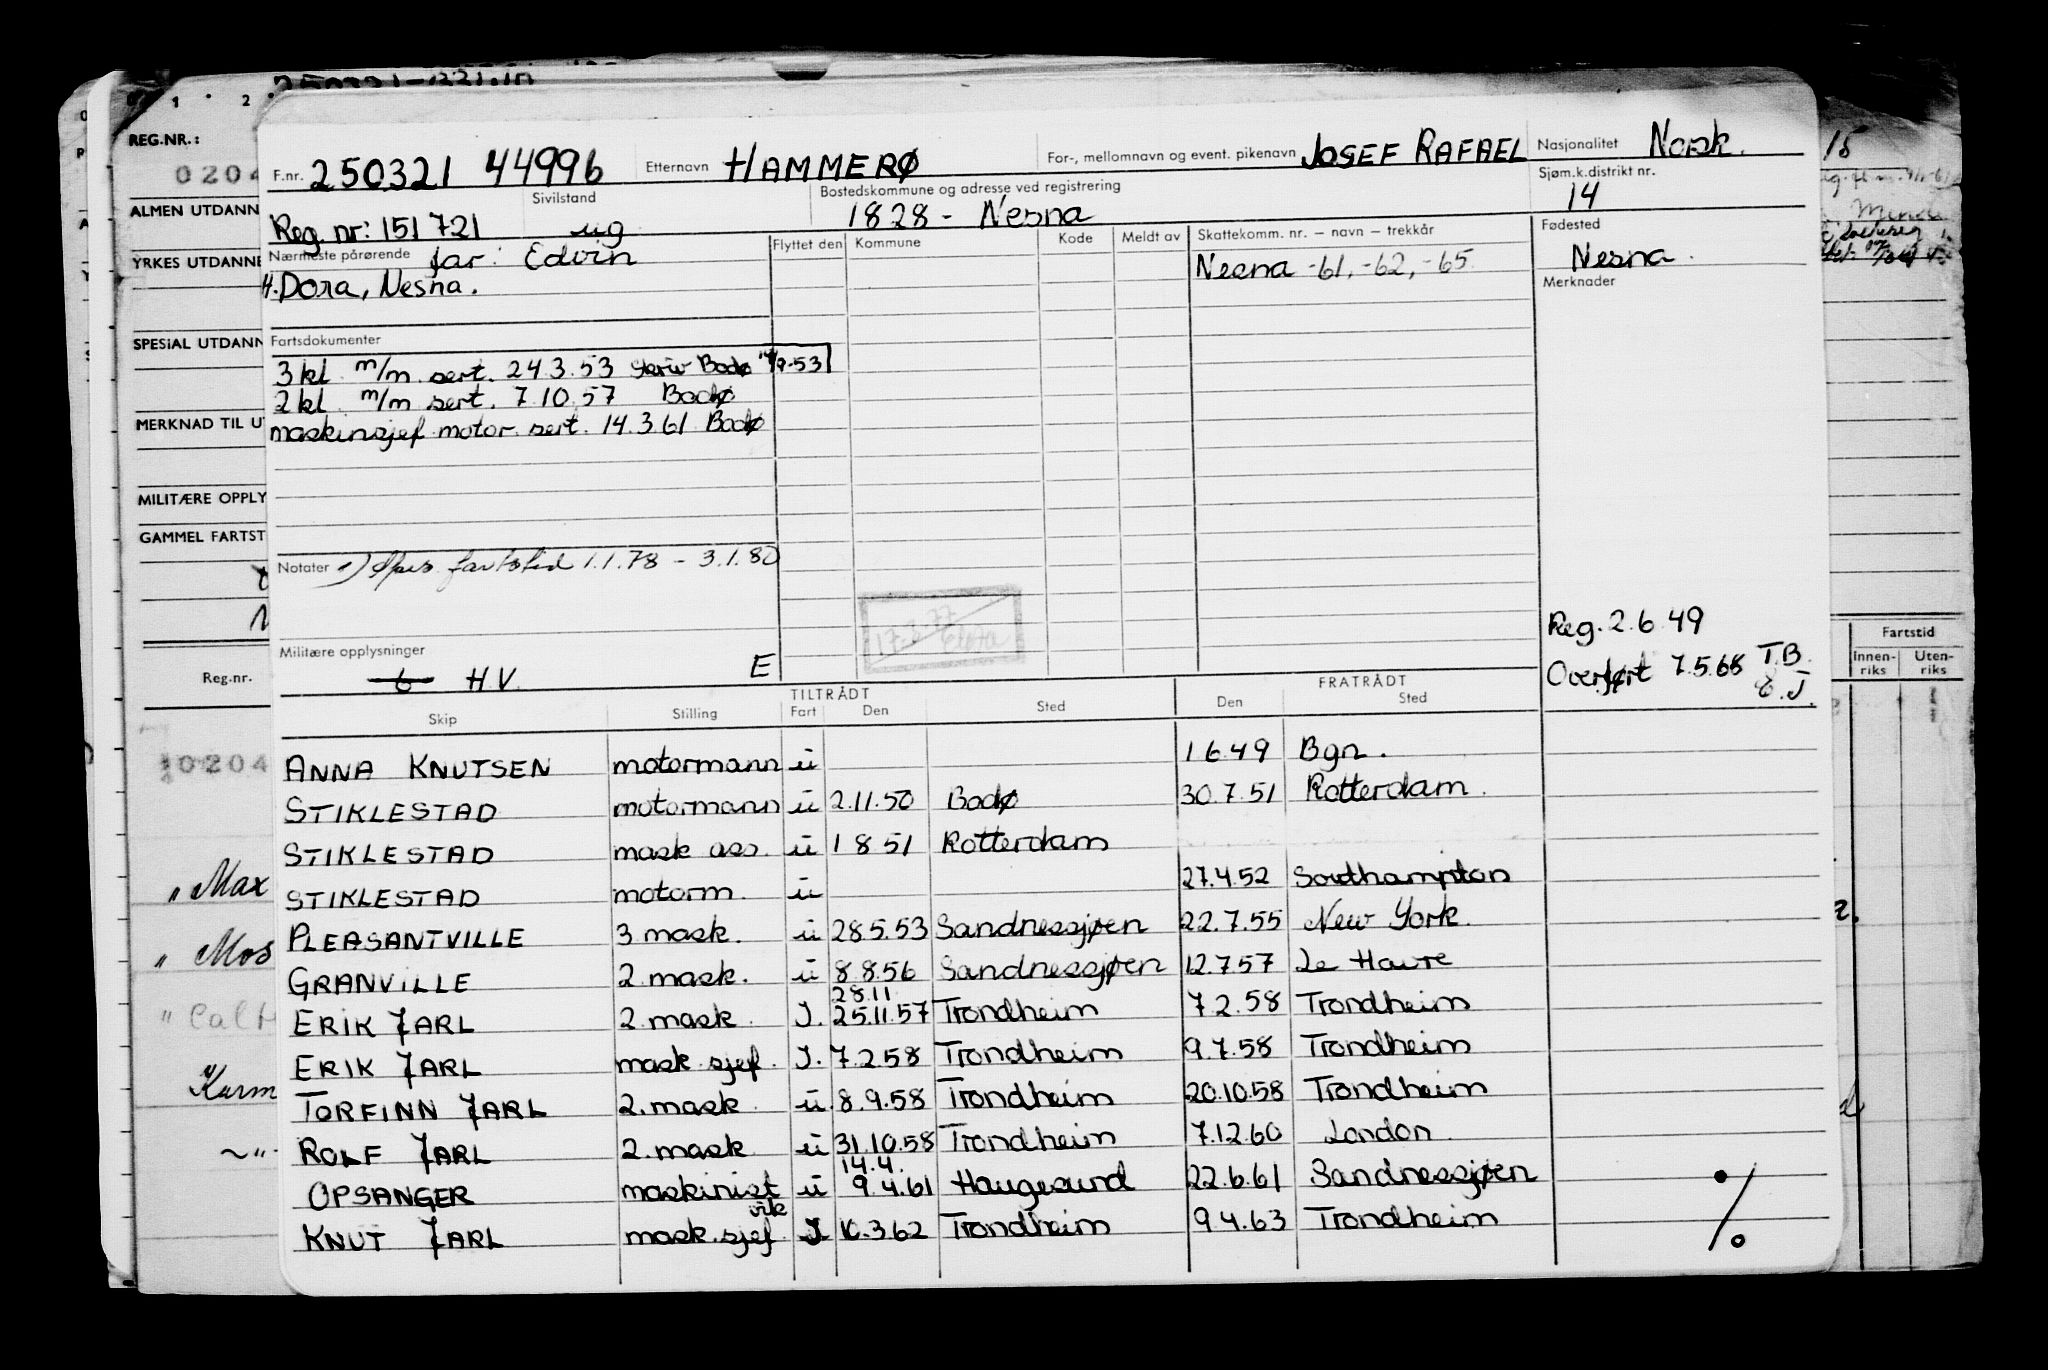 F.nr. 250321 44996 Etternavn HAMMERØ For-, mellomnavn og event. pikenavn JOSEF RAFAEL Nasjonalitet Norsk.
Reg. nr: 151721 Sivilstand ug Bostedskommune og adresse ved registrering 1828 - Nesna Sjøm.k.distrikt nr. 14
Nærmeste pårørende far: Edvin Flyttet den Kommune Kode Meldt av Skattekomm. nr. – navn – trekkår Fødested
H. Dora, Nesna. Nesna -61, -62, -65. Nesna.
Merknader
Fartsdokumenter
3 kl. m/m. sert. 24.3.53 Bodø
2 kl. m/m sert. 7.10.57 Bodø
maskinsjef motor. sert. 14.3.61 Bodø
Notater fartstid 1.1.78 - 3.1.80
Reg. 2.6.49
Militære opplysninger
6 H.V. E
Overført 7.5.65 T.B.
TILTRÅDT FRATRÅDT
Skip Stilling Fart Den Sted Den Sted
ANNA KNUTSEN motormann u 1.6.49 Bgn.
STIKLESTAD motormann u 2.11.50 Bodø 30.7.51 Rotterdam.
STIKLESTAD mask ass. u 1 8 51 Rotterdam
STIKLESTAD motorm. u 27.4.52 Southampton
PLEASANTVILLE 3 mask. u 28.5.53 Sandnessjøen 22.7.55 New York.
GRANVILLE 2. mask. u 8.8.56 Sandnessjøen 12.7.57 Le Havre
28.11
ERIK JARL 2. mask. J. 25.11.57 Trondheim 7.2.58 Trondheim
ERIK JARL mask. sjef. J. 7.2.58 Trondheim 9.7.58 Trondheim
TORFINN JARL 2. mask. u. 8.9.58 Trondheim 20.10.58 Trondheim
ROLF JARL 2. mask u 31.10.58 Trondheim 7.12.60 London.
14.4.
OPSANGER maskinist u 9.4.61 Haugesund 22.6.61 Sandnessjøen
vik
KNUT JARL mask. sjef J 10.3.62 Trondheim 9 4.63 Trondheim
REG.NR.:
0204
ALMEN UTDANN
YRKES UTDANNE
SPESIAL UTDANN
MERKNAD TIL U
MILITÆRE OPPLY
GAMMEL FARTST
Reg.nr.
10204
" Max
" Mos
Karm
15
Fartstid
Innen-riks Uten-riks